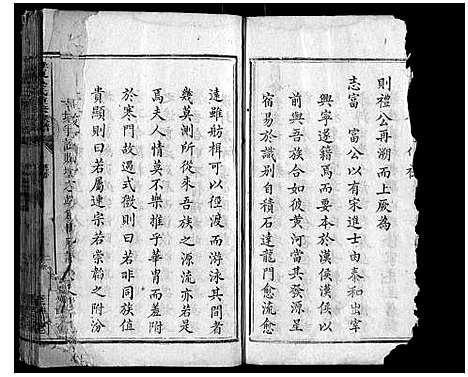 則禮公再溯而上厥為
志富 富公以有宋進士由泰和出宰
興寧遂籍焉而要本於漢侯漢侯以
前與吾族合如彼黃河當其發源星
宿易於識別自積石達龍門愈流愈
遠雖舫楫可以徑渡而游泳其間者
幾莫測所從來吾族之源流亦若是
焉夫人情莫不樂推乎華胄而羞附
於寒門故遇式微則曰若非同族值
貴顯則曰若屬連宗若崇韜之附汾